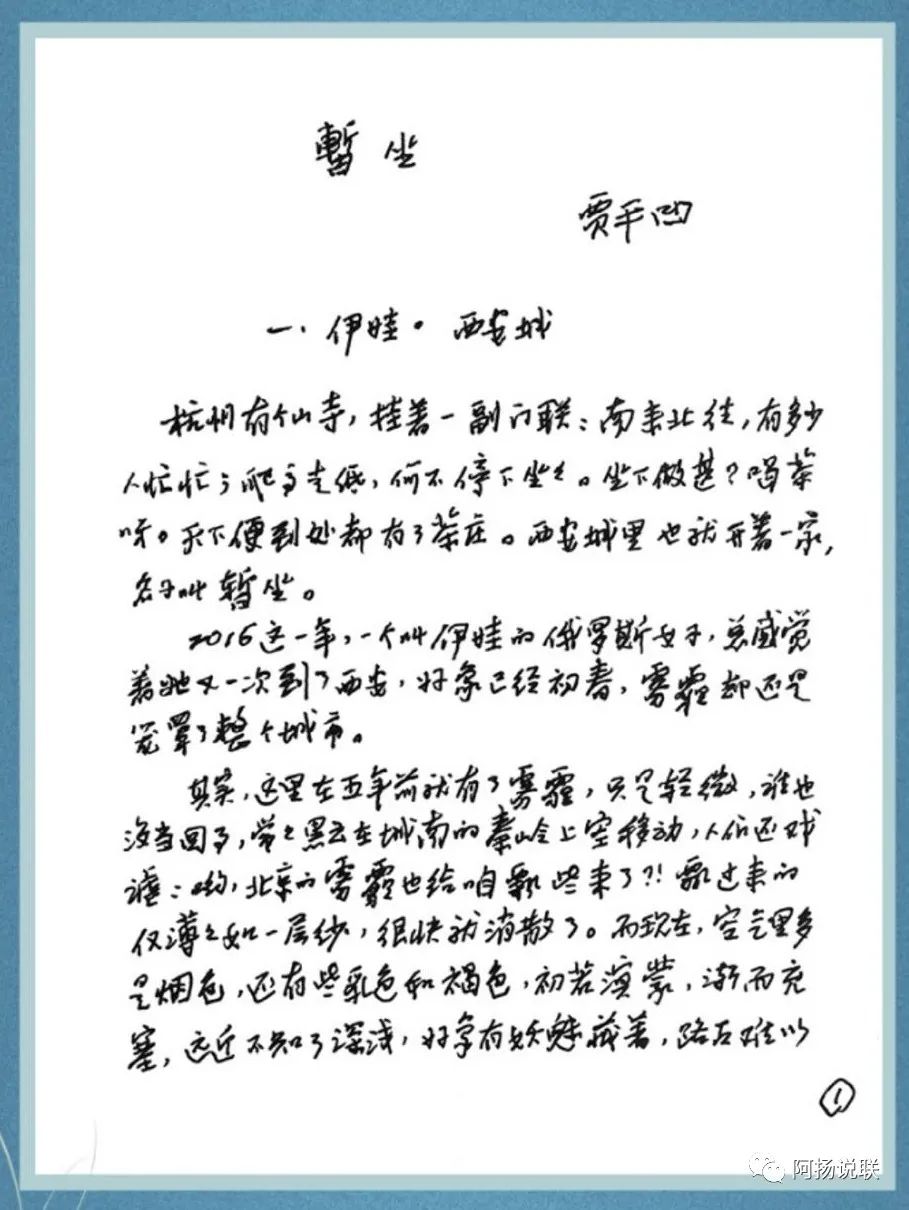 暫坐
贾平凹
一、伊娃·西安城
杭州有个山寺，挂着一副门联：南来北往，有多少
人忙忙；爬高走低，何不停下坐坐。坐下做甚？喝茶
呀。天下便到处都有了茶庄。西安城里也就开着一家，
名字叫暂坐。
2016这一年，一个叫伊娃的俄罗斯女子，总感觉
着她又一次到了西安，好象已经初春，雾霾却还是
笼罩了整个城市。
其实，这里在五年前就有了雾霾，只是轻微，谁也
没当回事，常常黑云在城南的秦岭上空移动，人们还戏
谑：哟，北京的雾霾也给咱飘些来了?！飘过来的
仅薄薄如一层纱，很快就消散了。而现在，空气里多
是烟色，还有些乳色和褐色，初若溟蒙，渐而充
塞，远近不知了深浅，好象有妖魅藏着，路上难以
1
阿扬说联